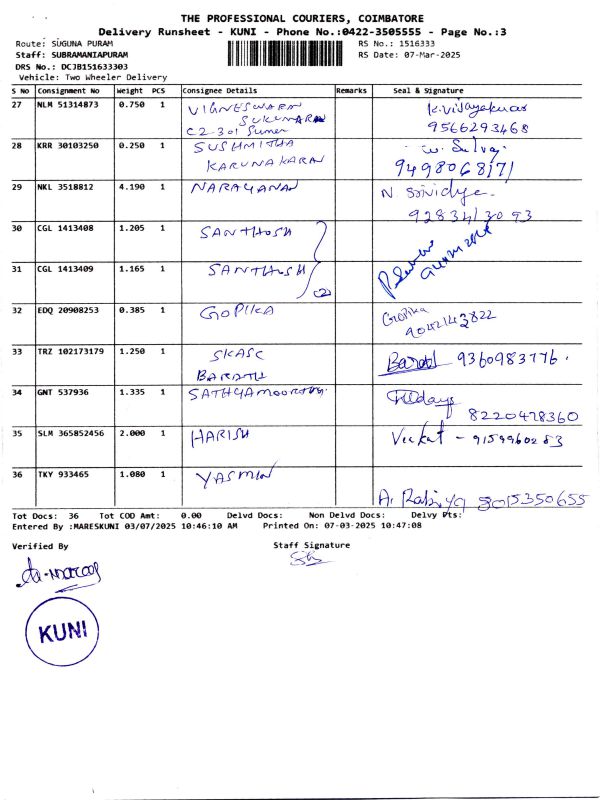 THE PROFESSIONAL COURIERS, COIMBATORE
Delivery Runsheet - KUNI - Phone No.:0422-3505555 - Page No.:3
Route: SUGUNA PURAM RS No.: 1516333
Staff: SUBRAMANIAPURAM RS Date: 07-Mar-2025
DRS No.: DCJB151633303
Vehicle: Two Wheeler Delivery
S No Consignment No Weight PCS Consignee Details Remarks Seal & Signature
27 NLM 51314873 0.750 1 VIGNESWARN K.Vijayakumar
SUKUMARAN 9566293468
C2 301 Sumer
28 KRR 30103250 0.250 1 SUSHMITHA
KARUNAKARAN 9498068171
29 NKL 3518812 4.190 1 NARAYANAN N. Srividya
9283413093
30 CGL 1413408 1.205 1 SANTHOSH
31 CGL 1413409 1.165 1 SANTHOSH
(2)
32 EDQ 20908253 0.385 1 GOPIKA Gopika
9042143822
33 TRZ 102173179 1.250 1 SKASC 9360983776.
BARATH
34 GNT 537936 1.335 1 SATHYAMOORTHY.
8220478360
35 SLM 365852456 2.000 1 HARISH Venkat - 9159960283
36 TKY 933465 1.080 1 YASMIN
A. Rabiya 8015350655
Tot Docs: 36 Tot COD Amt: 0.00 Delvd Docs: Non Delvd Docs: Delvy Pts:
Entered By :MARESKUNI 03/07/2025 10:46:10 AM Printed On: 07-03-2025 10:47:08
Verified By Staff Signature
KUNI